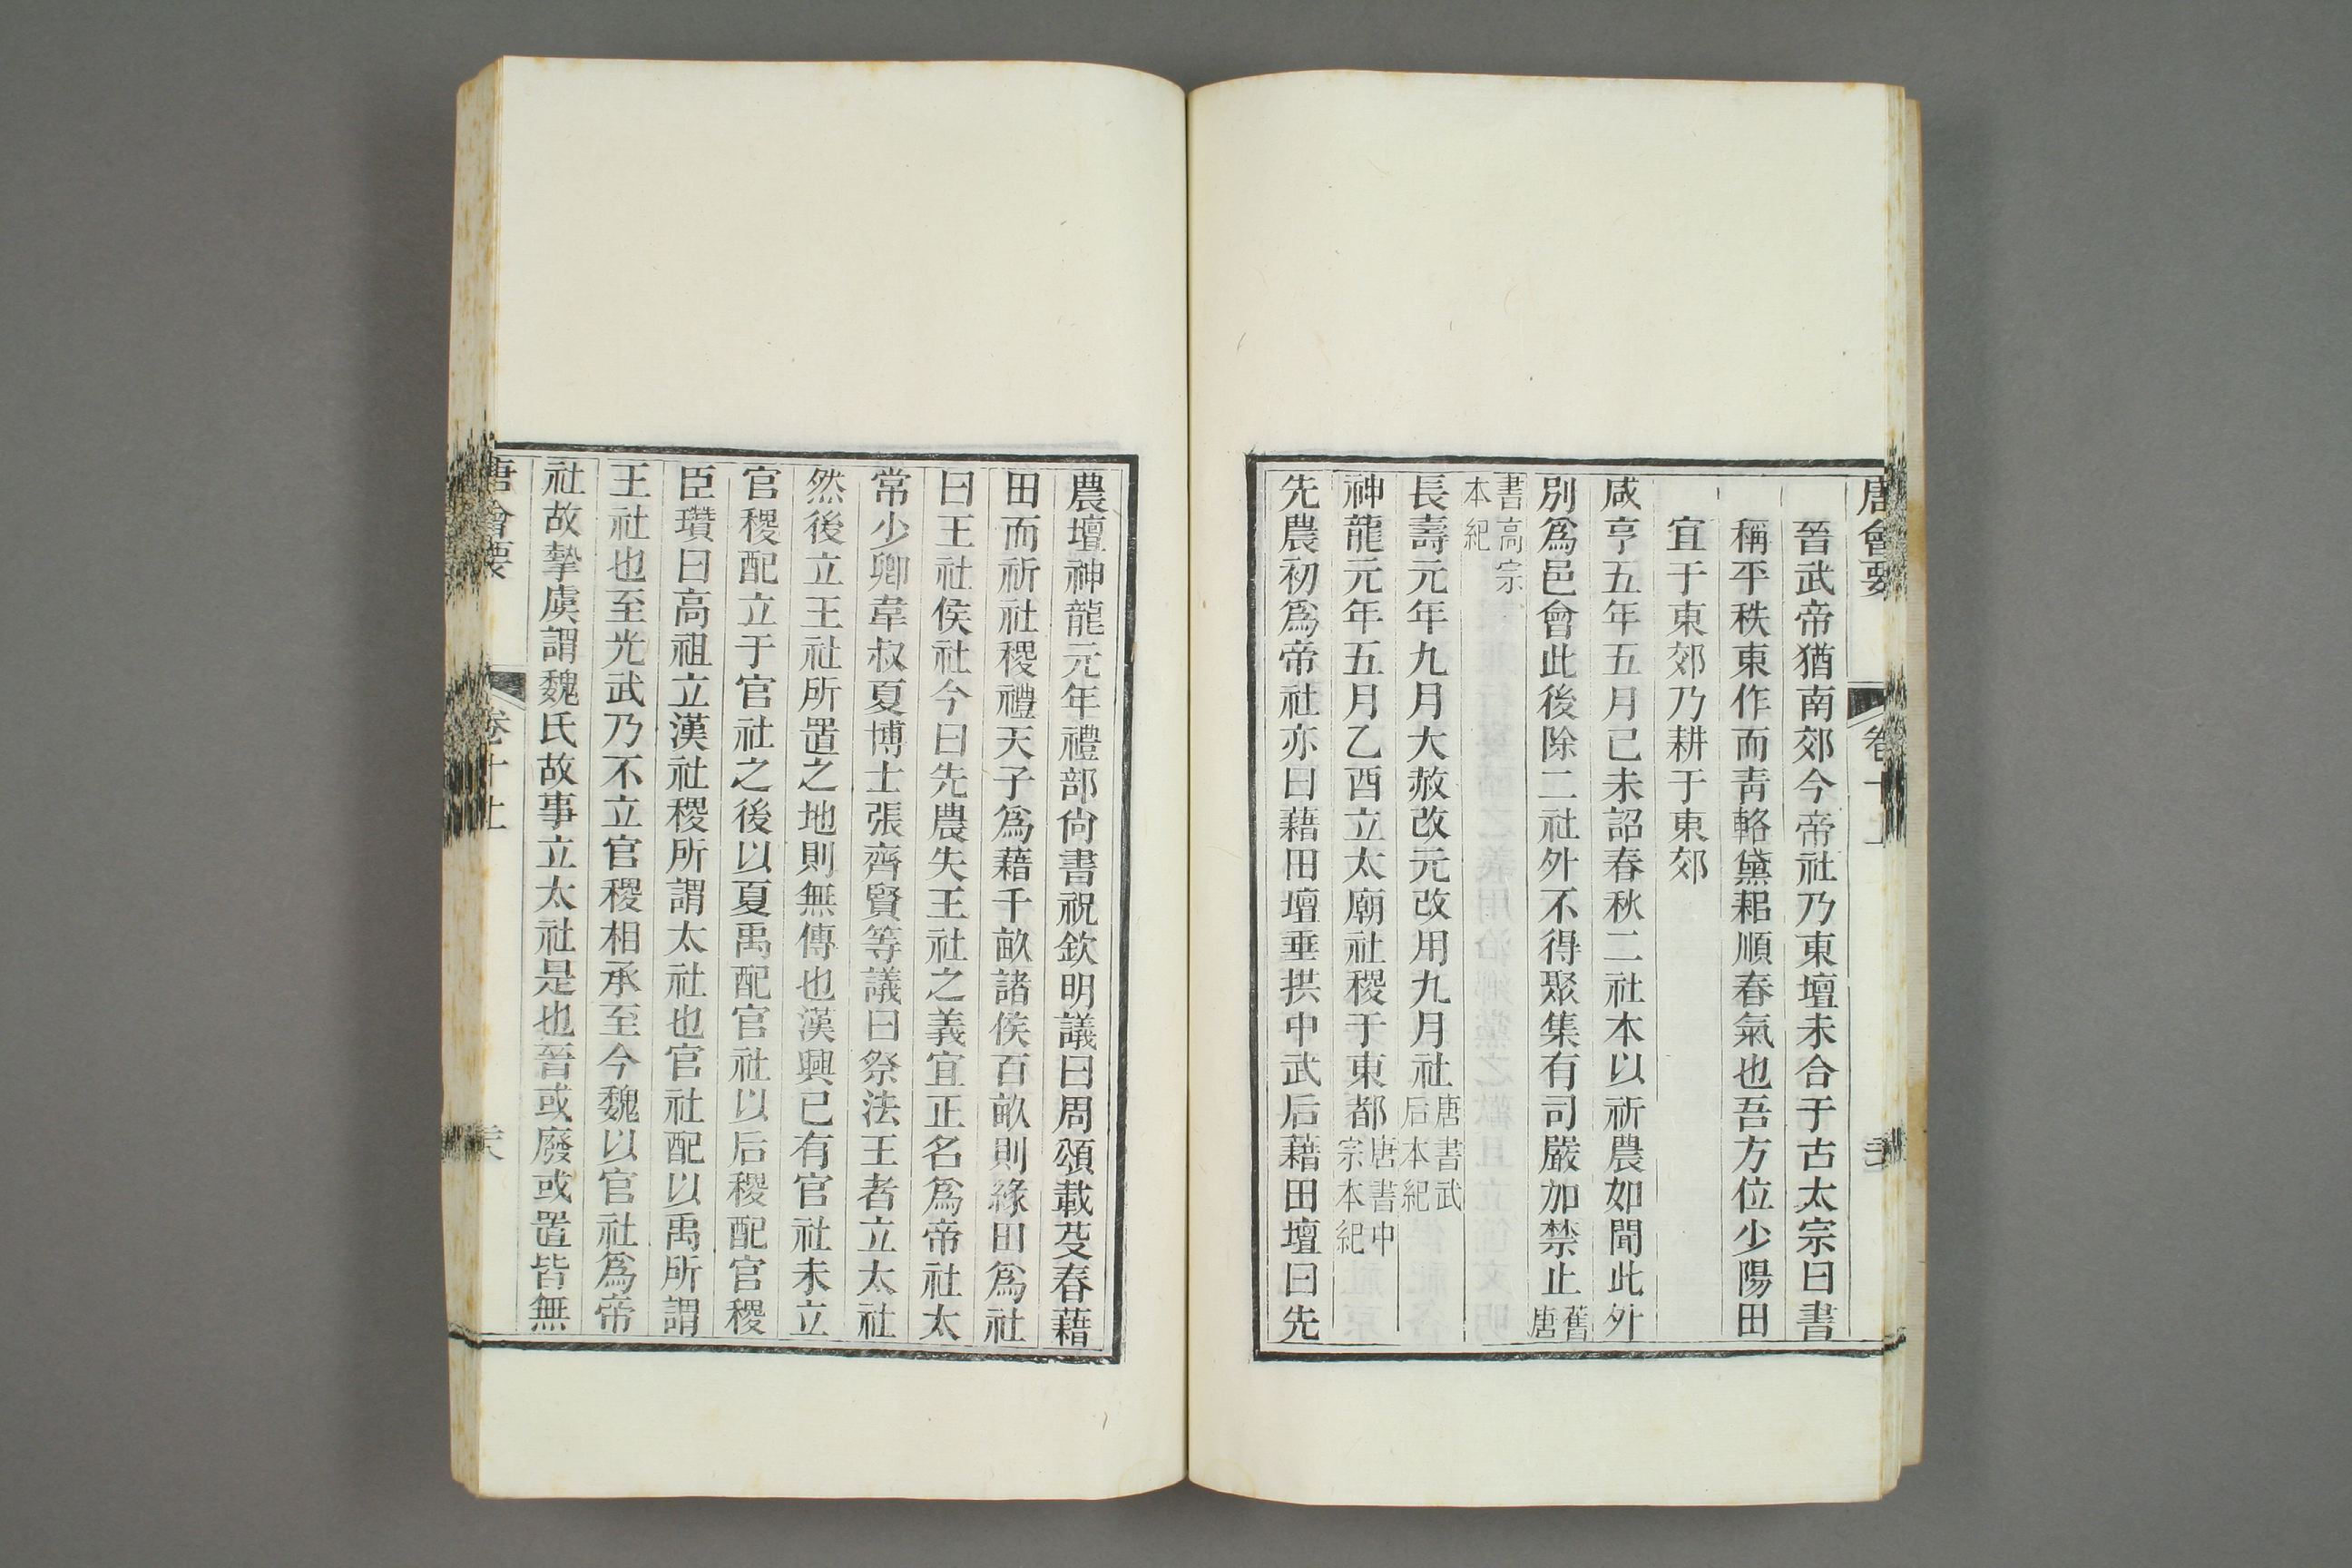 唐會要 卷十上
晉武帝猶南郊今帝社乃東壇未合于古太宗曰書
稱平秩東作而靑輅黛耜順春氣也吾方位少陽田
宜于東郊乃耕于東郊
咸亨五年五月己未詔春秋二社本以祈農如聞此外
別爲邑會此後除二社外不得聚集有司嚴加禁止舊唐
書高宗本紀
長壽元年九月大赦改元改用九月社唐書武后本紀
神龍元年五月乙酉立太廟社稷于東都唐書中宗本紀
先農初爲帝社亦曰藉田壇垂拱中武后藉田壇曰先
農壇神龍元年禮部尙書祝欽明議曰周頌載芟春藉
田而祈社稷禮天子爲藉千畝諸侯百畝則緣田爲社
曰王社侯社今曰先農失王社之義宜正名爲帝社太
常少卿韋叔夏博士張齊賢等議曰祭法王者立太社
然後立王社所置之地則無傳也漢興已有官社未立
官稷配立于官社之後以夏禹配官社以后稷配官稷
臣瓚曰高祖立漢社稷所謂太社也官社配以禹所謂
王社也至光武乃不立官稷相承至今魏以官社爲帝
社故摯虞謂魏氏故事立太社是也晉或廢或置皆無
唐會要 卷十上